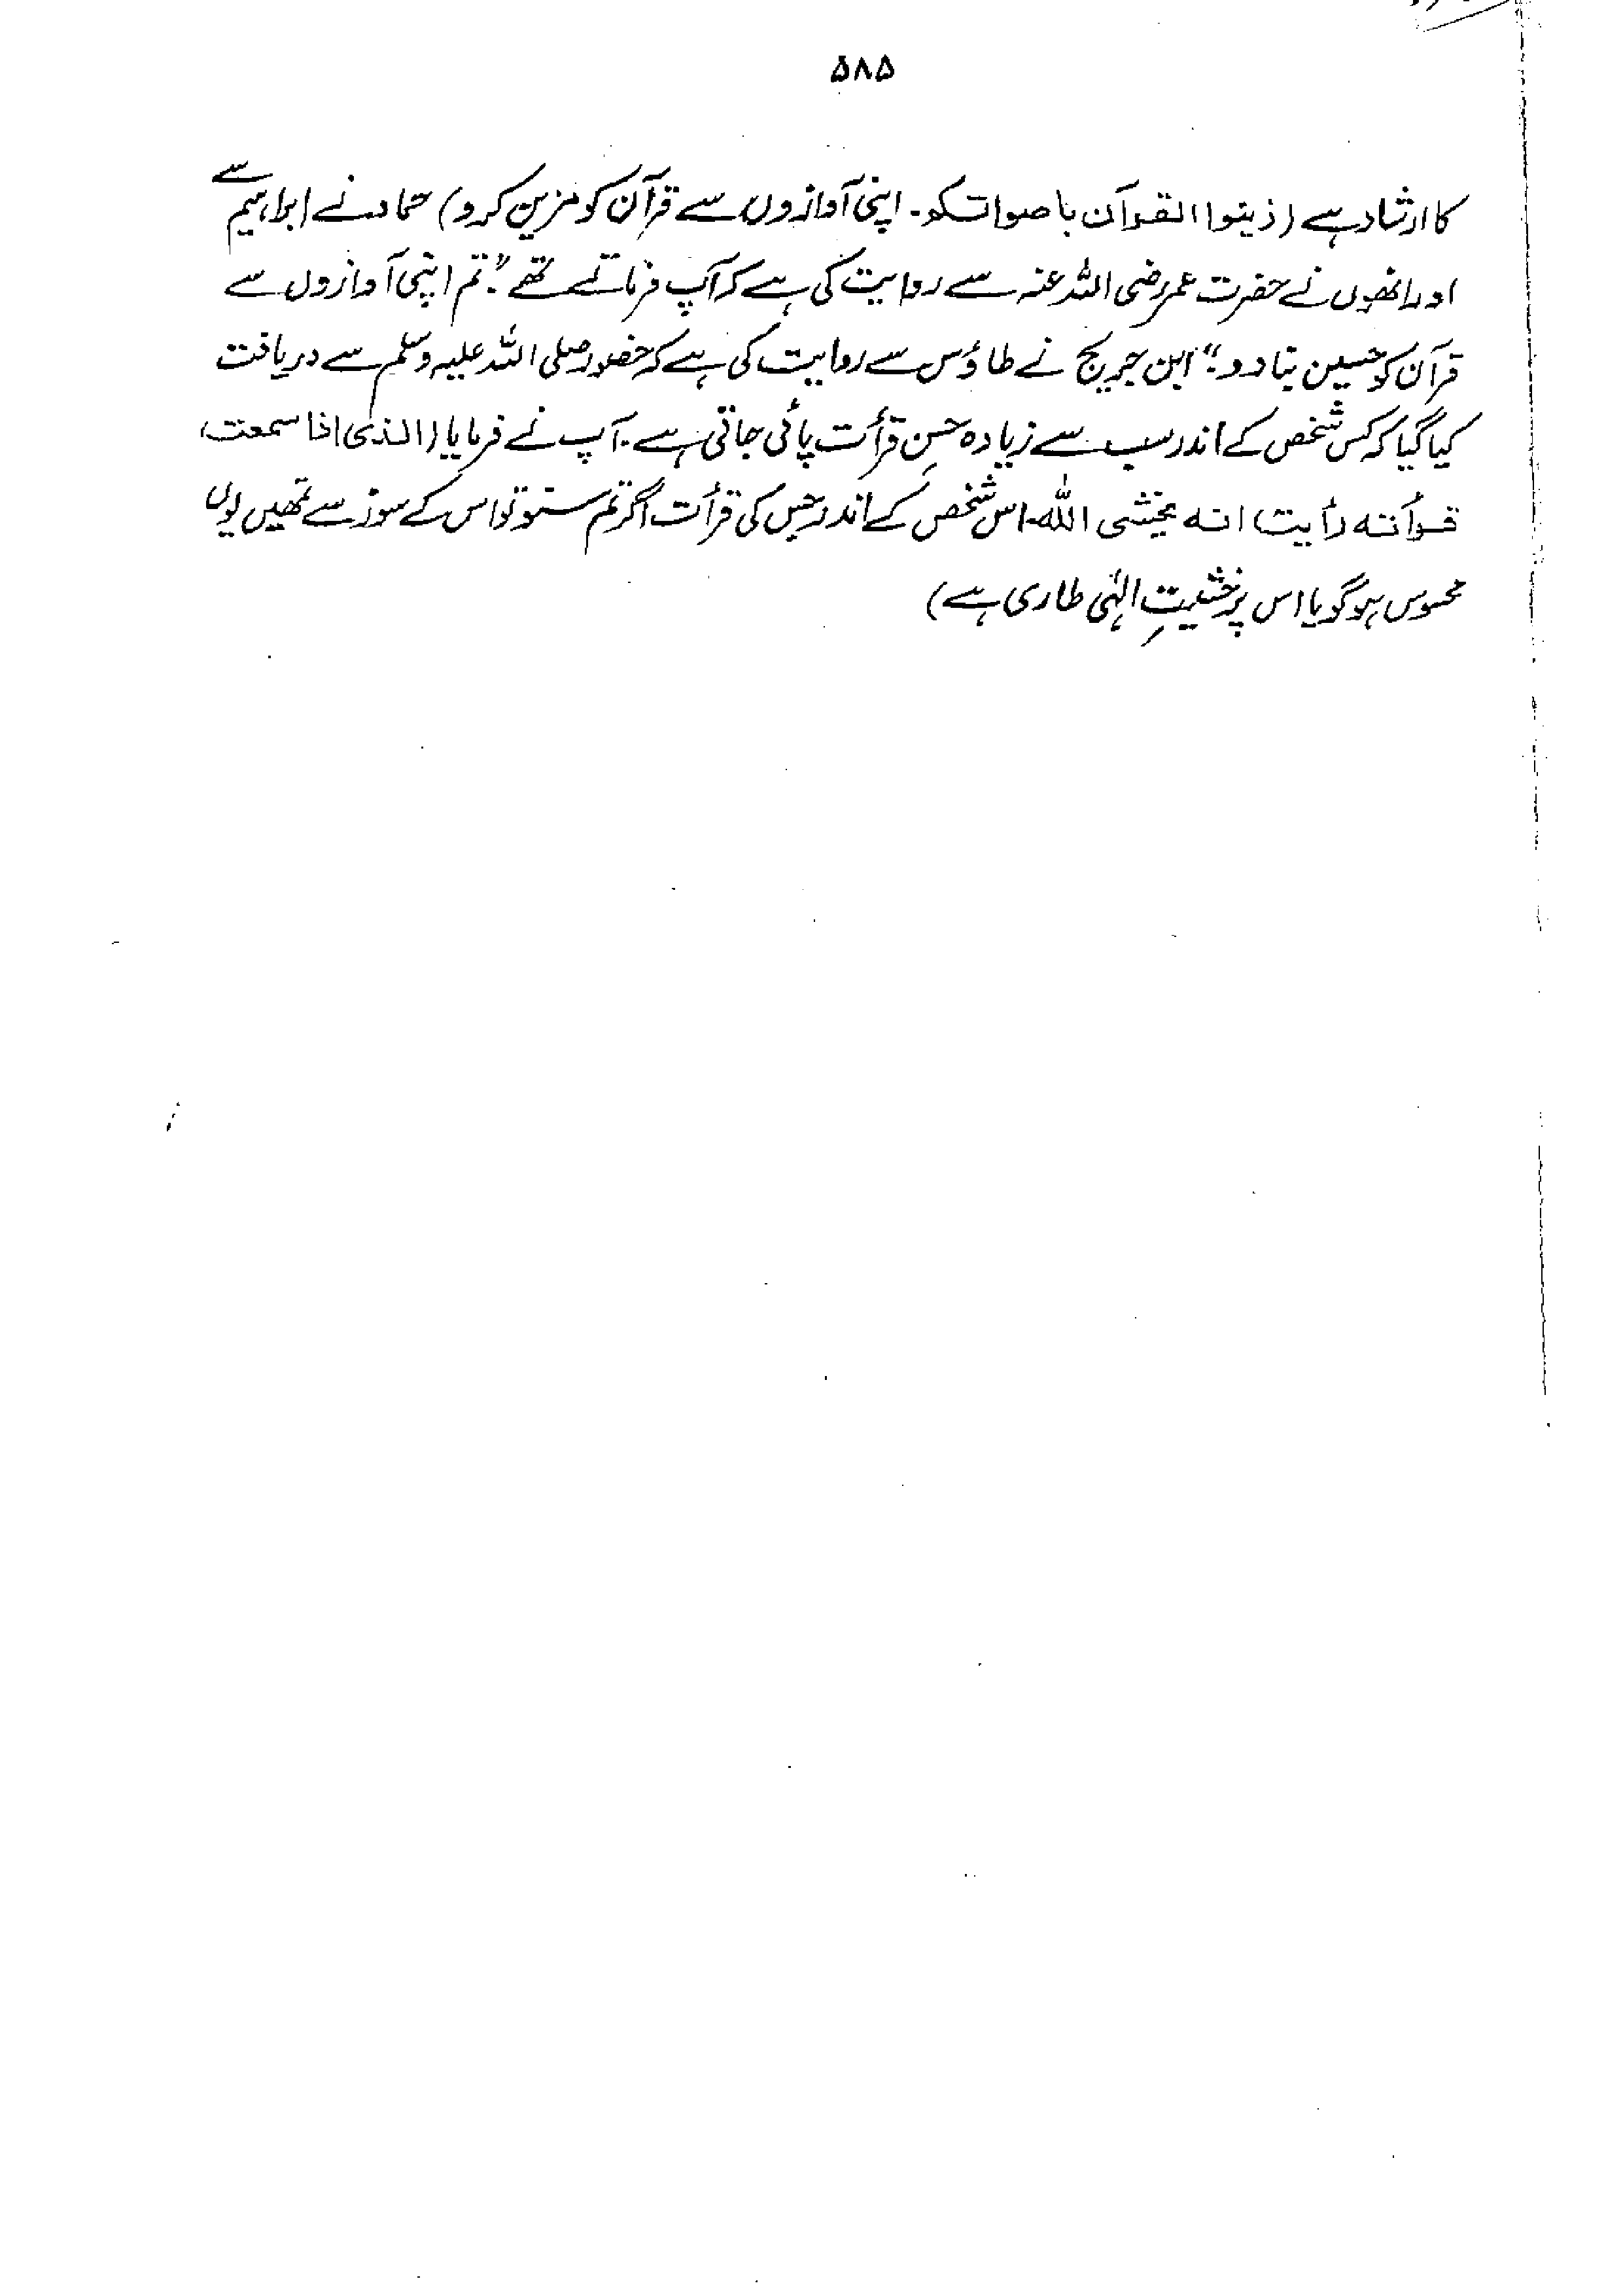 ۵۸۵
کا ارشاد ہے (زینوا القرآن باصواتکو۔ اپنی آوازوں سے قرآن کو مزین کرو) حماد نے ابراہیم سے
اور انھوں نے حضرت عمر رضی اللہ عنہ سے روایت کی ہے کہ آپ فرماتے تھے "تم اپنی آوازوں سے
قرآن کو حسین بنا دو۔" ابن جریج نے طاؤس سے روایت کی ہے کہ حضور صلی اللہ علیہ وسلم سے دریافت
کیا گیا کہ کس شخص کے اندر سب سے زیادہ حسنِ قرأت پائی جاتی ہے۔ آپ نے فرمایا (الذی اذا سمعت
قرآنہ رأیت انہ یخشی اللہ۔ اس شخص کے اندر جس کی قرأت اگر تم سنو تو اس کے سوز سے تمھیں یوں
محسوس ہو گویا اس پر خشیتِ الٰہی طاری ہے)